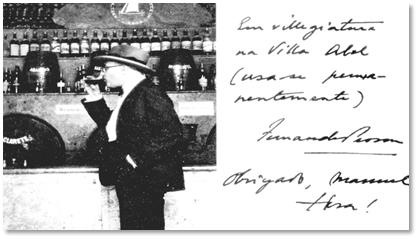 CLARETE
Em villegiatura
na Villa Abel
(usa-se perma-
nentemente)
Fernando Pessoa
Obrigado, Manuel